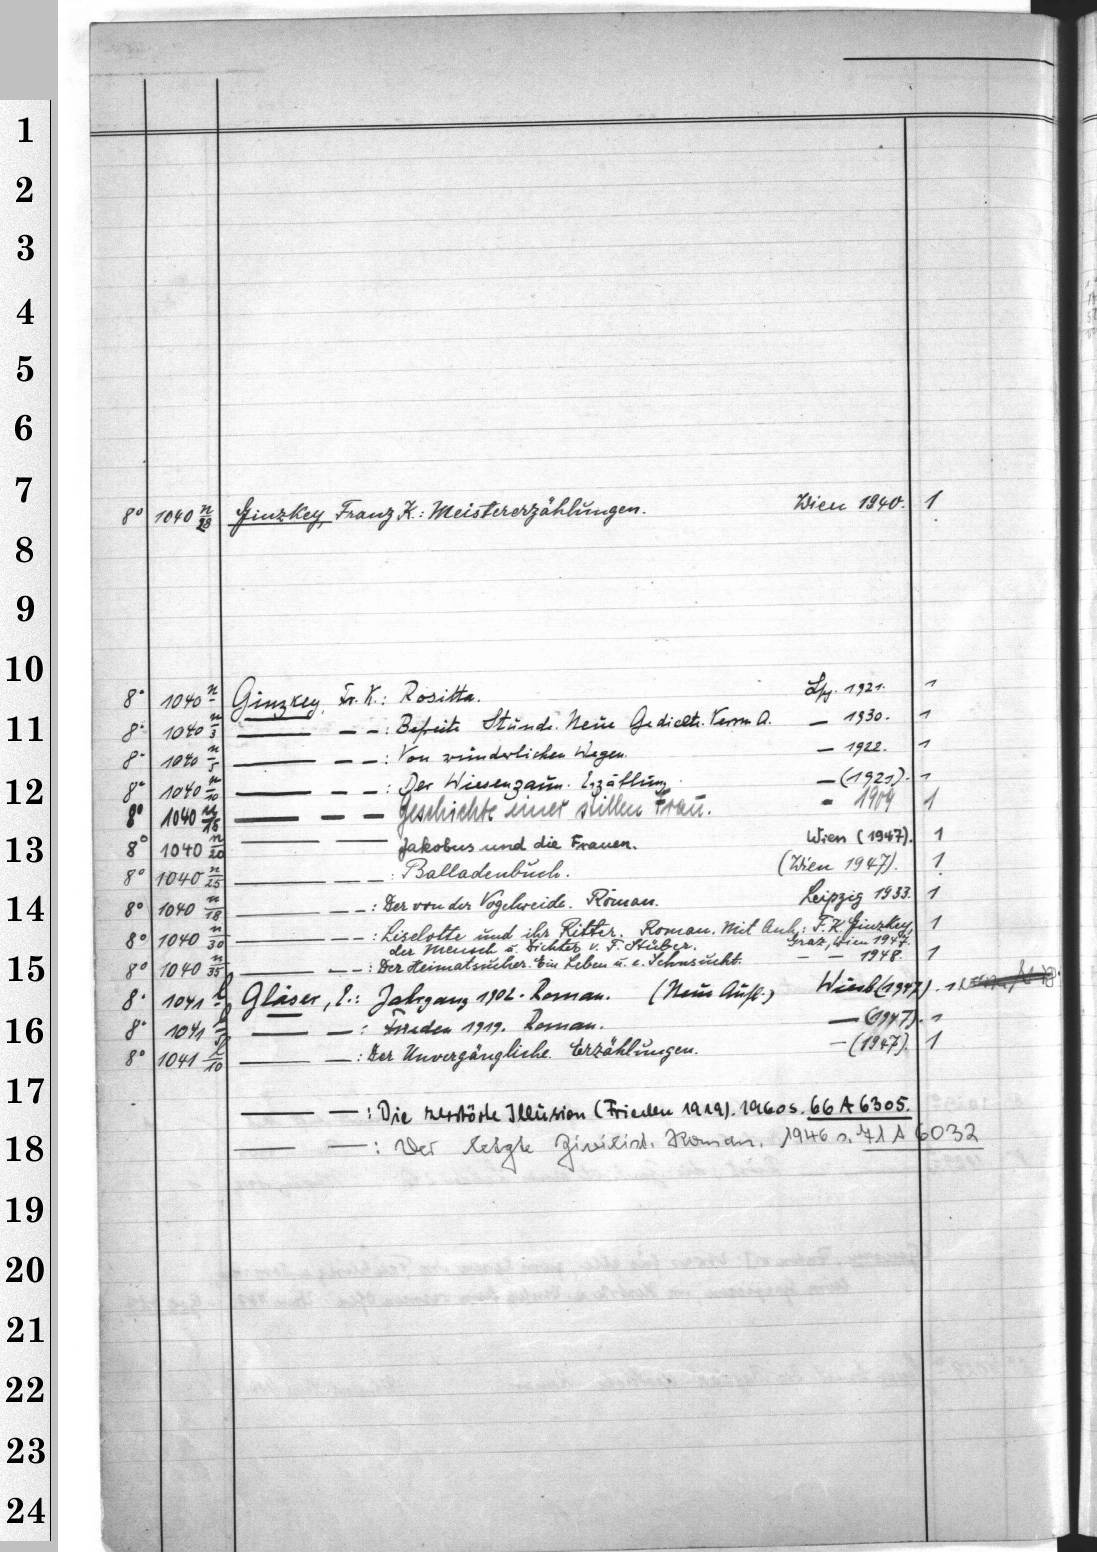 1
2
3
4
5
6
7
8° 1040 n/28 Ginzkey, Franz K.: Meistererzählungen. Wien 1940. 1
8
9
10
8° 1040 n Ginzkey, Fr. K.: Rositta. Lpz. 1921. 1
11
8° 1040 n/3 — — — : Befreite Stunde. Neue Gedichte. Verm. A. — 1930. 1
8° 1040 n/5 — — — : Von wunderlichen Wegen. — 1922. 1
12
8° 1040 n/10 — — — : Der Wiesenzaun. Erzählung. — (1921). 1
8° 1040 n/15 — — — Geschichte einer stillen Frau. — 1909 1
13
8° 1040 n/20 — — Jakobus und die Frauen. Wien (1947). 1
8° 1040 n/25 — — — : Balladenbuch. (Wien 1947). 1
14
8° 1040 n/18 — — — : Der von der Vogelweide. Roman. Leipzig 1933. 1
8° 1040 n/30 — — — : Liselotte und ihr Ritter. Roman. Mit Anh.: F. K. Ginzkey, 1
der Mensch u. Dichter v. F. Hüber. Graz, Wien 1947.
15
8° 1040 n/35 — — — : Der Heimatsucher. Ein Leben u. e. Sehnsucht. — — 1948. 1
8° 1041 Gläser, E.: Jahrgang 1902. Roman. (Neue Aufl.) (1947). 1
16
8° 1041 — — : Frieden 1919. Roman. — (1947). 1
8° 1041 /10 — — : Der Unvergängliche. Erzählungen. — (1947). 1
17
— — : Die zerstörte Illusion (Frieden 1919). 1960 s. 66 A 6305.
18
— — : Der letzte Zivilist. Roman. 1946 s. 71 A 6032
19
20
21
22
23
24